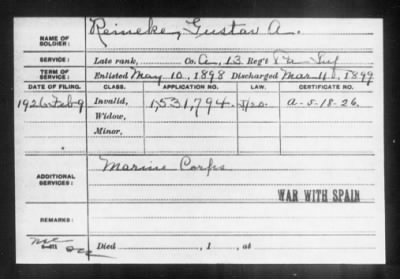 NAME OF SOLDIER: Reineke, Gustav A.
SERVICE: Late rank, Co. A, 13 Reg't Pa Inf
TERM OF SERVICE: Enlisted May 10, 1898 Discharged Mar 11, 1899
DATE OF FILING. CLASS. APPLICATION NO. LAW. CERTIFICATE NO.
1926 Feb 9 Invalid, 1,531,794. A-5-18-26.
Widow,
Minor,
ADDITIONAL SERVICES: Marine Corps
WAR WITH SPAIN
REMARKS:
Died , 1 , at